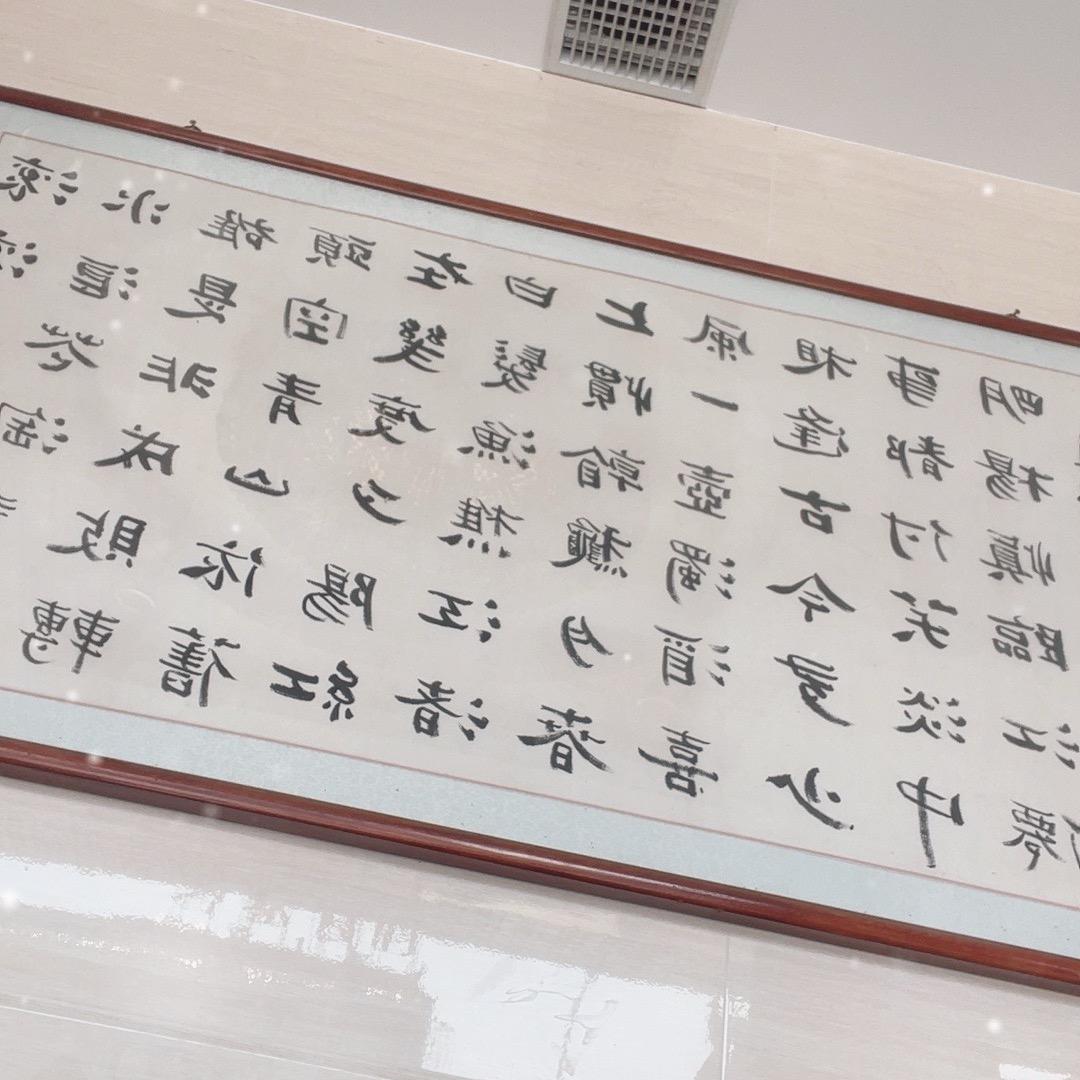 滾
水浪花淘
雄是非成敗轉
頭空青山依舊
在幾度夕陽紅
白髮漁樵江渚
上慣看龝月春
風一壺濁酒喜
相逢古今多少
事都付笑談中
明楊慎臨江僊